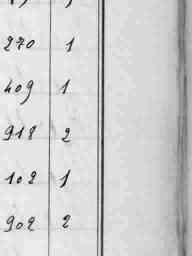 270 1
409 1
918 2
102 1
902 2